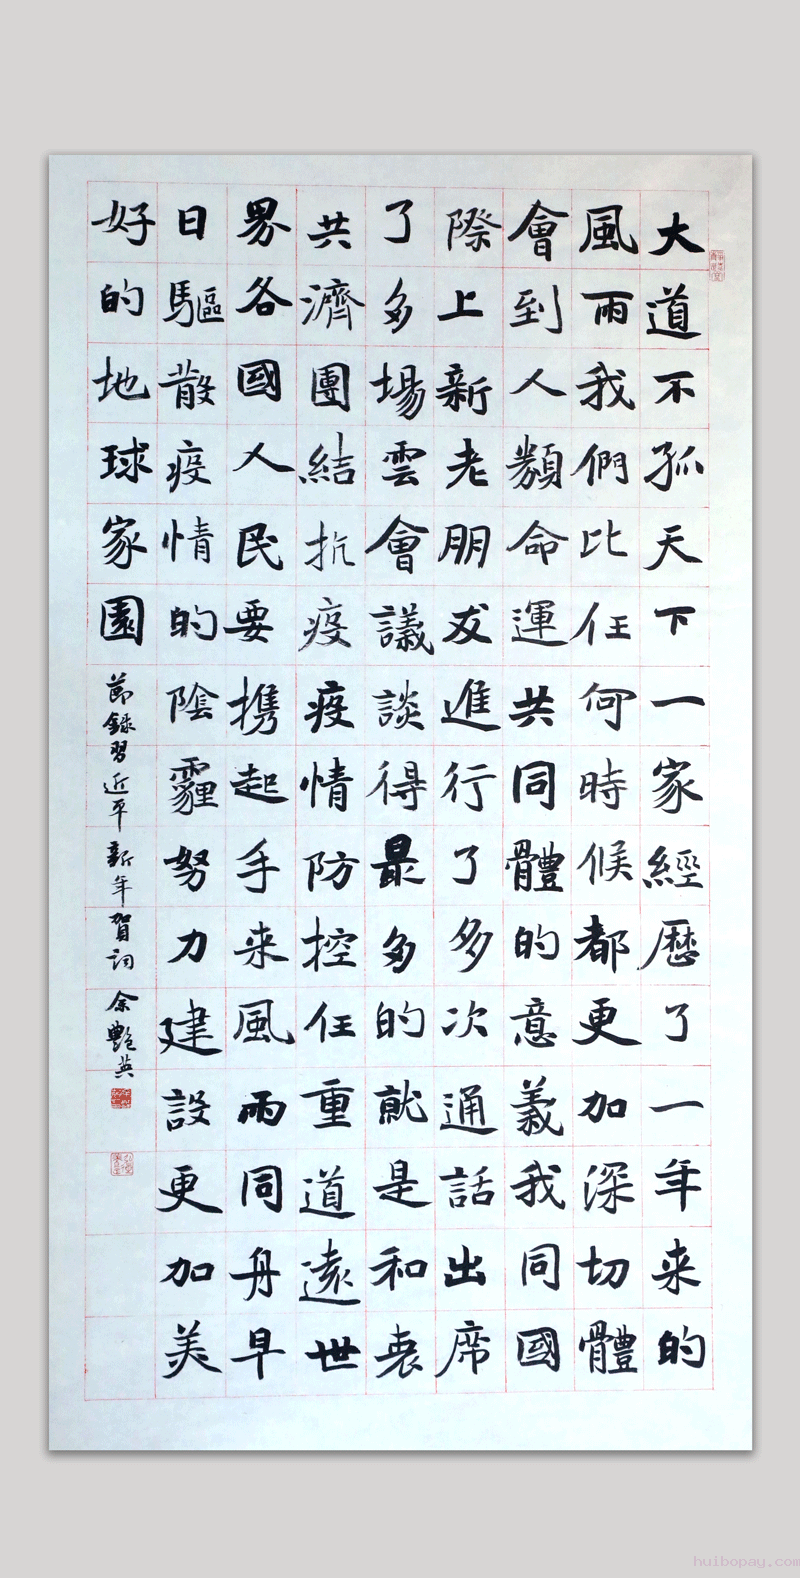 大道不孤天下一家經歷了一年来的
風雨我們比任何時候都更加深切體
會到人類命運共同體的意義我同國
際上新老朋友進行了多次通話出席
了多場雲會議談得最多的就是和衷
共濟團結抗疫疫情防控任重道遠世
界各國人民要携起手来風雨同舟早
日驅散疫情的陰霾努力建設更加美
好的地球家園
節錄習近平新年賀詞 余艷英
huibopay.com